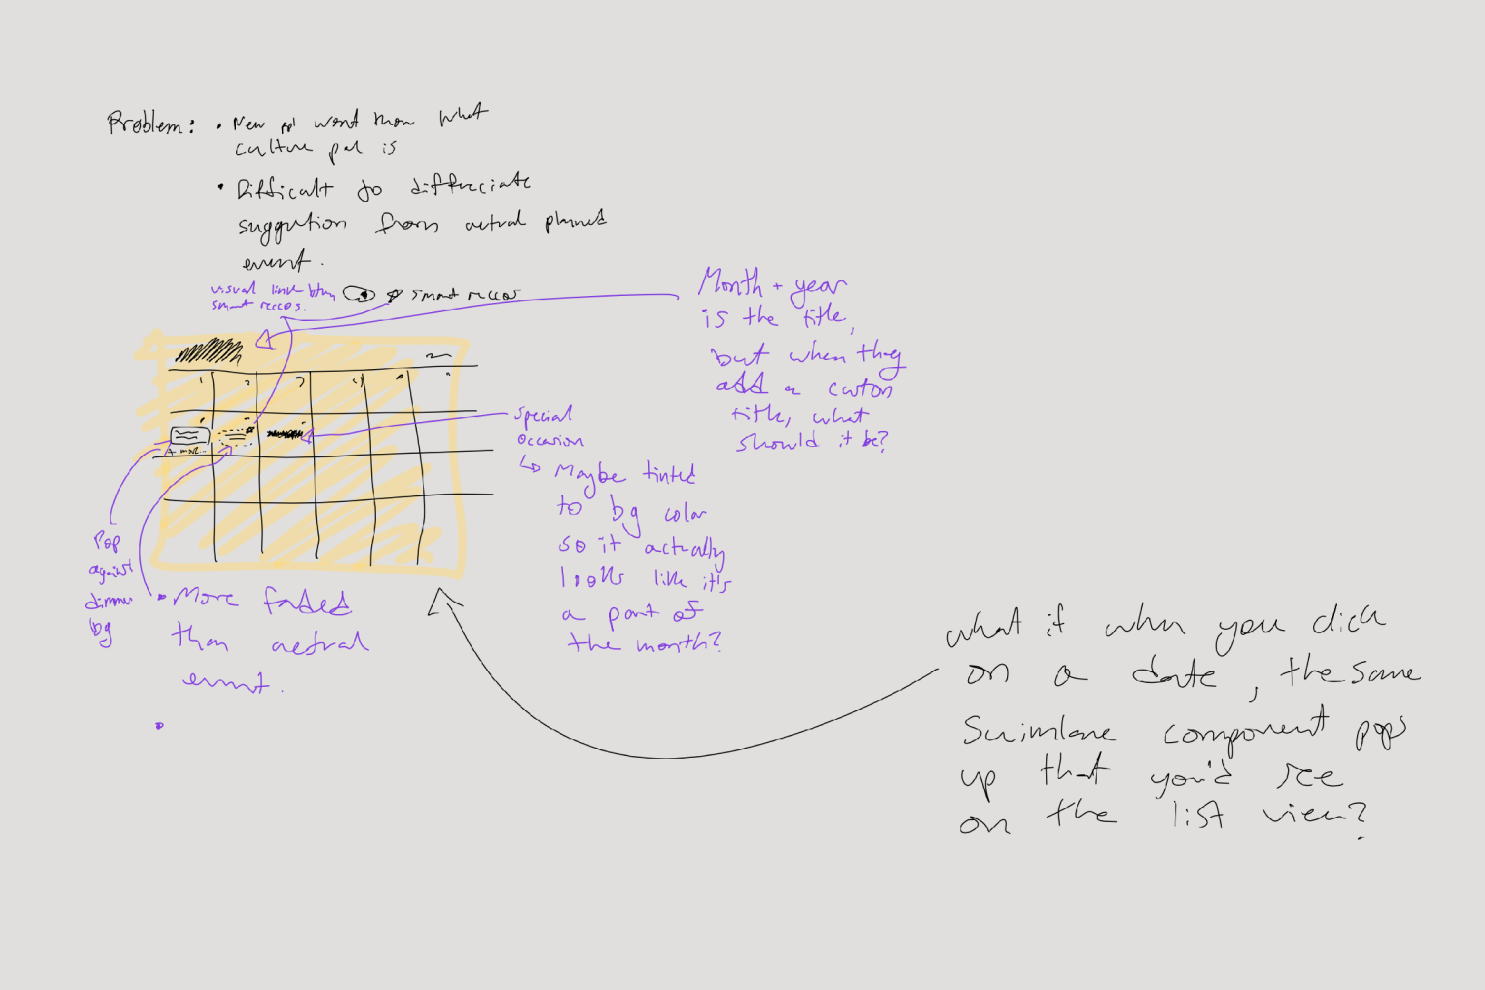 Problem: • New ppl wont know what
culture pal is
• Difficult to differciate
suggestion from actual planned
event.
visual link btwn
smart reccos.
smart reccos
Month + year
is the title,
but when they
add a custom
title, what
should it be?
Special
occasion
↳ Maybe tinted
to bg color
so it actually
looks like it's
a part of
the month?
1 2 3
4 more...
Pop
against
dimmer
bg
• More faded
than actual
event.
•
what if when you click
on a date, the same
Swimlane component pops
up that you'd see
on the list view?